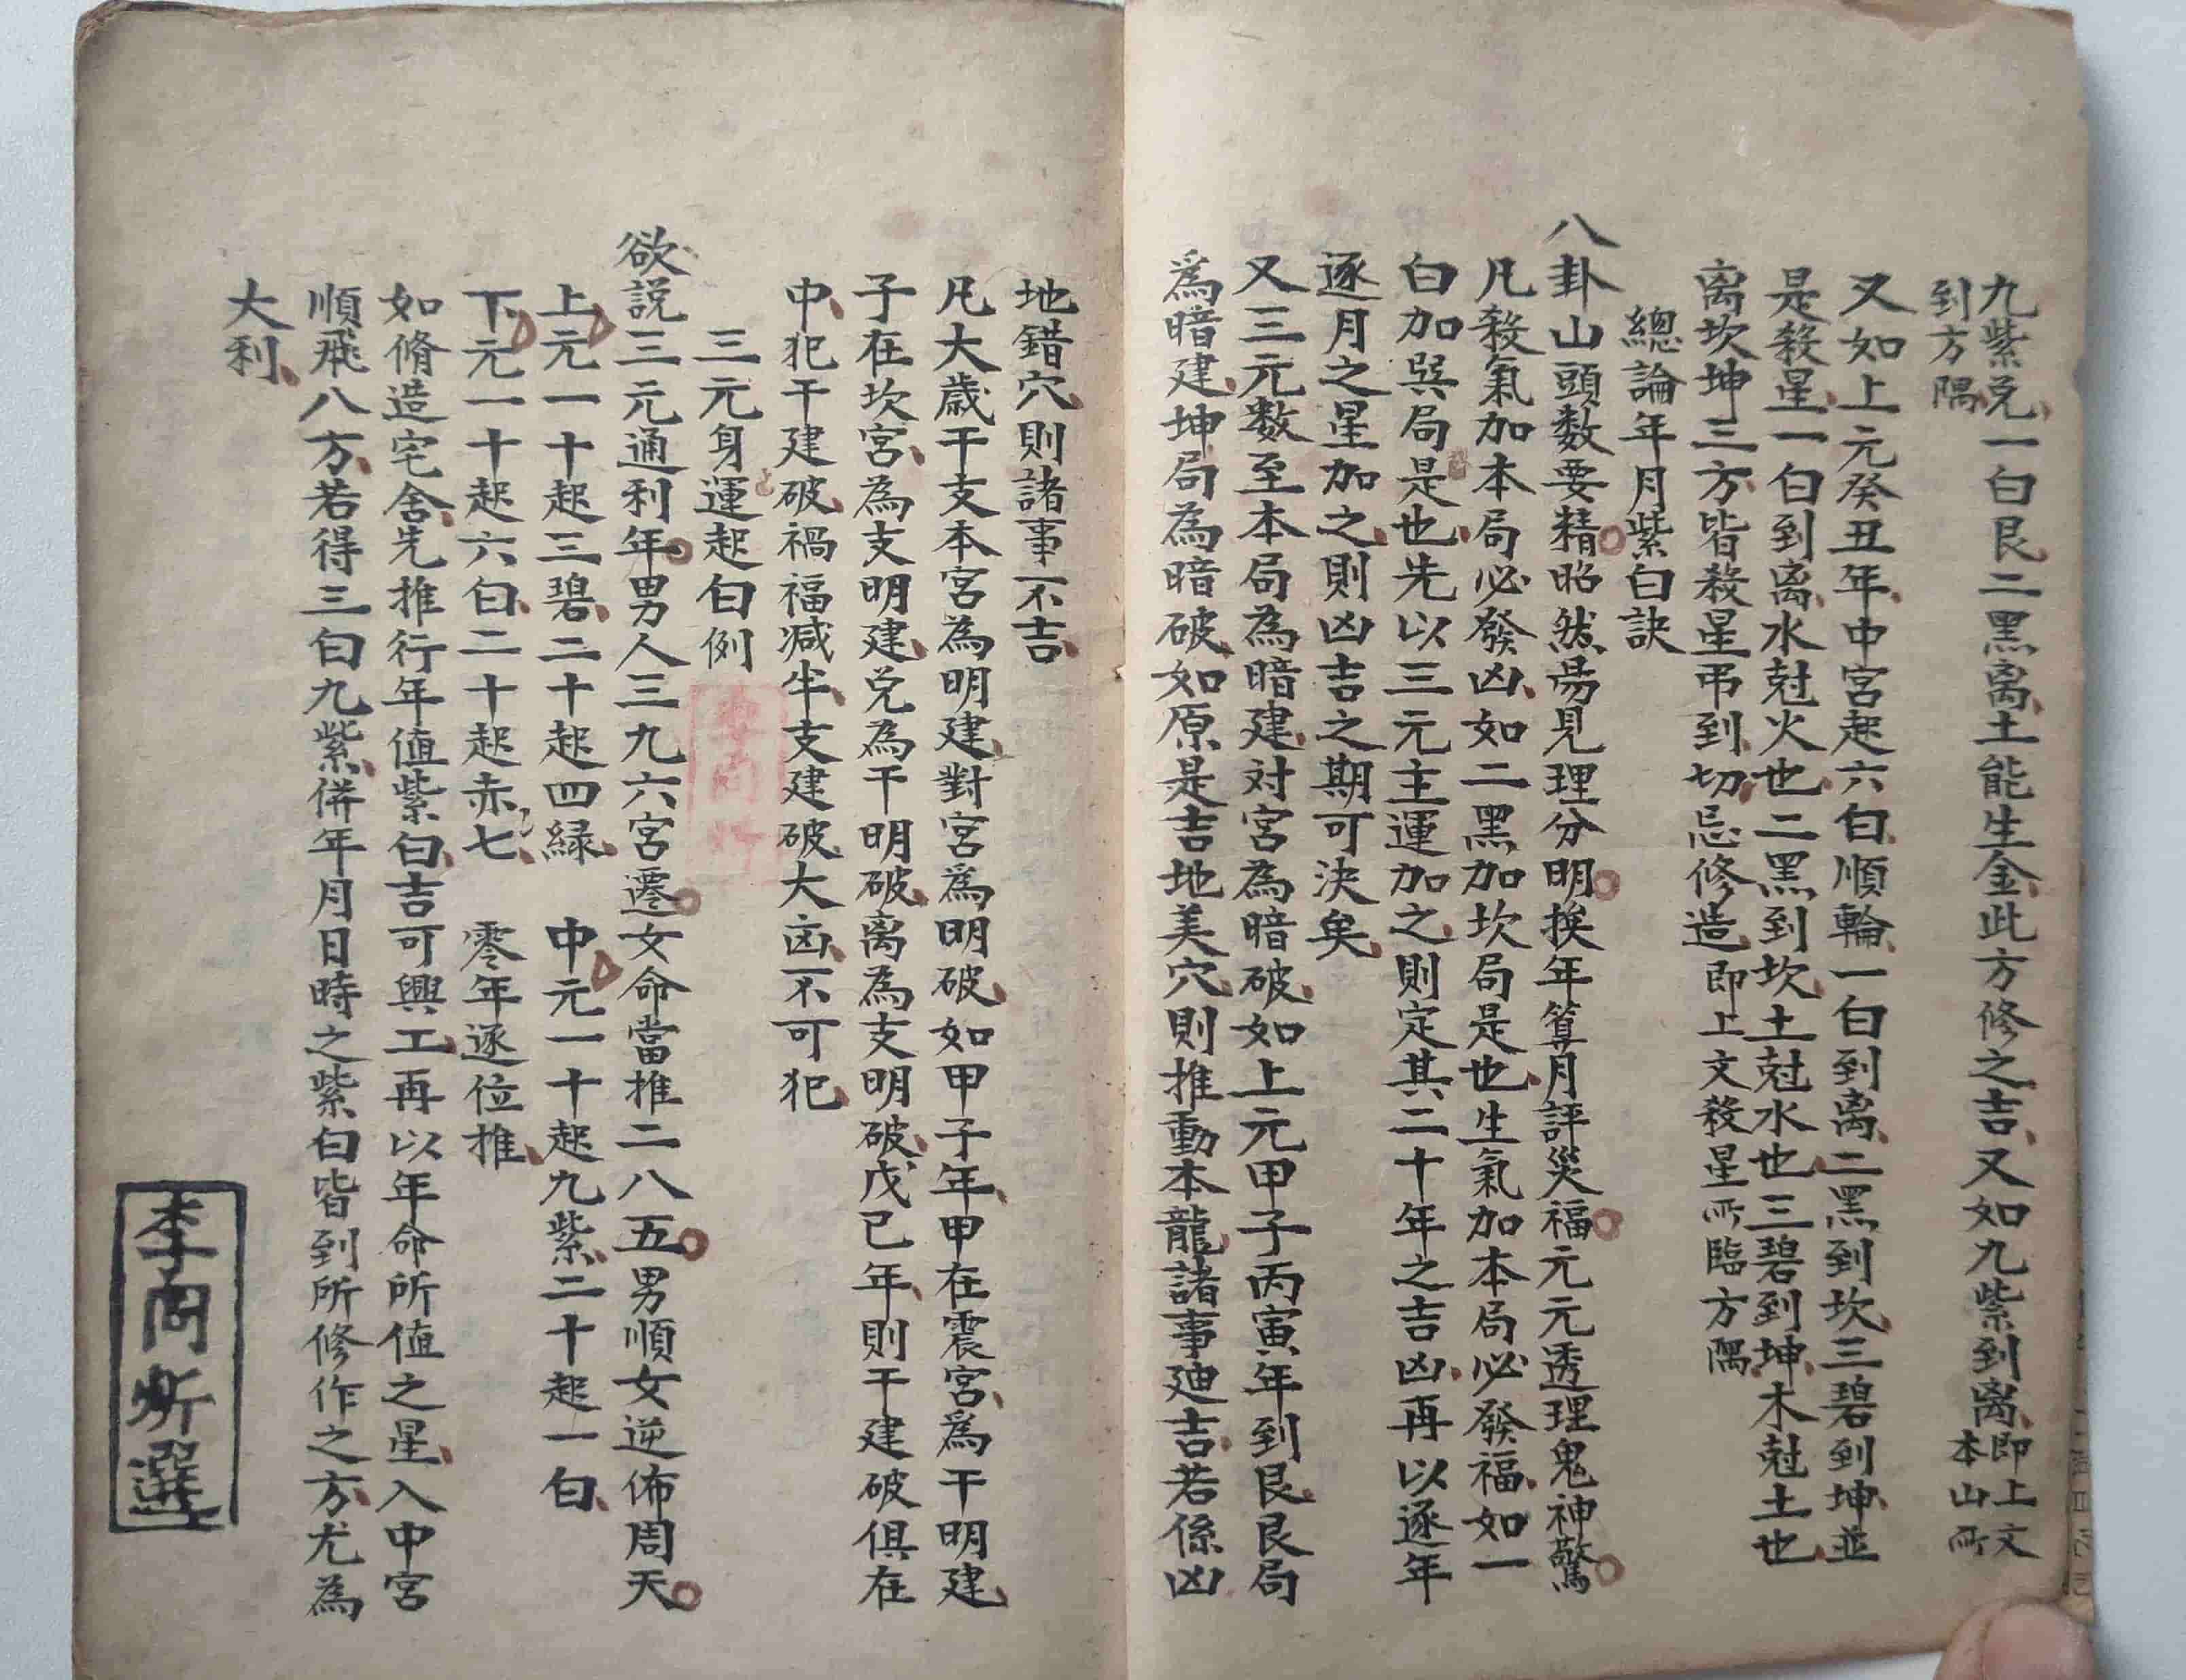 九紫兑一白艮二黑离土能生金此方修之吉又如九紫到离即上文本山所
到方隅
又如上元癸丑年中宫起六白順輪一白到离二黑到坎三碧到坤並
是殺星一白到离水尅火也二黑到坎土尅水也三碧到坤木尅土也
离坎坤三方皆殺星弔到切忌修造即上文殺星所臨方隅
總論年月紫白訣
八卦山頭数要精昭然昜見理分明挨年算月評災福元元透理鬼神驚
凡殺氣加本局必發凶如二黑加坎局是也生氣加本局必發福如一
白加巽局是也先以三元主運加之則定其二十年之吉凶再以逐年
逐月之星加之則凶吉之期可決矣
又三元数至本局為暗建対宮為暗破如上元甲子丙寅年到艮艮局
爲暗建坤局為暗破如原是吉地美穴則推動本龍諸事廸吉若係凶
地錯穴則諸事不吉
凡大歲干支本宮為明建對宮爲明破如甲子年甲在震宮爲干明建
子在坎宮為支明建兑為干明破离為支明破戊已年則干建破俱在
中犯干建破禍福减半支建破大凶不可犯
三元身運起白例
欲説三元通利年男人三九六宮遷女命當推二八五男順女逆佈周天
上元一十起三碧二十起四緑 中元一十起九紫二十起一白
下元一十起六白二十起赤七 零年逐位推
如脩造宅舍先推行年值紫白吉可興工再以年命所值之星入中宮
順飛八方若得三白九紫併年月日時之紫白皆到所修作之方尤為
大利